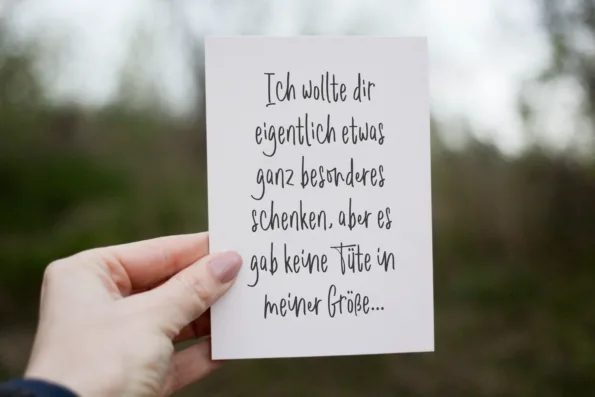 Ich wollte dir
eigentlich etwas
ganz besonderes
schenken, aber es
gab keine Tüte in
meiner Größe...